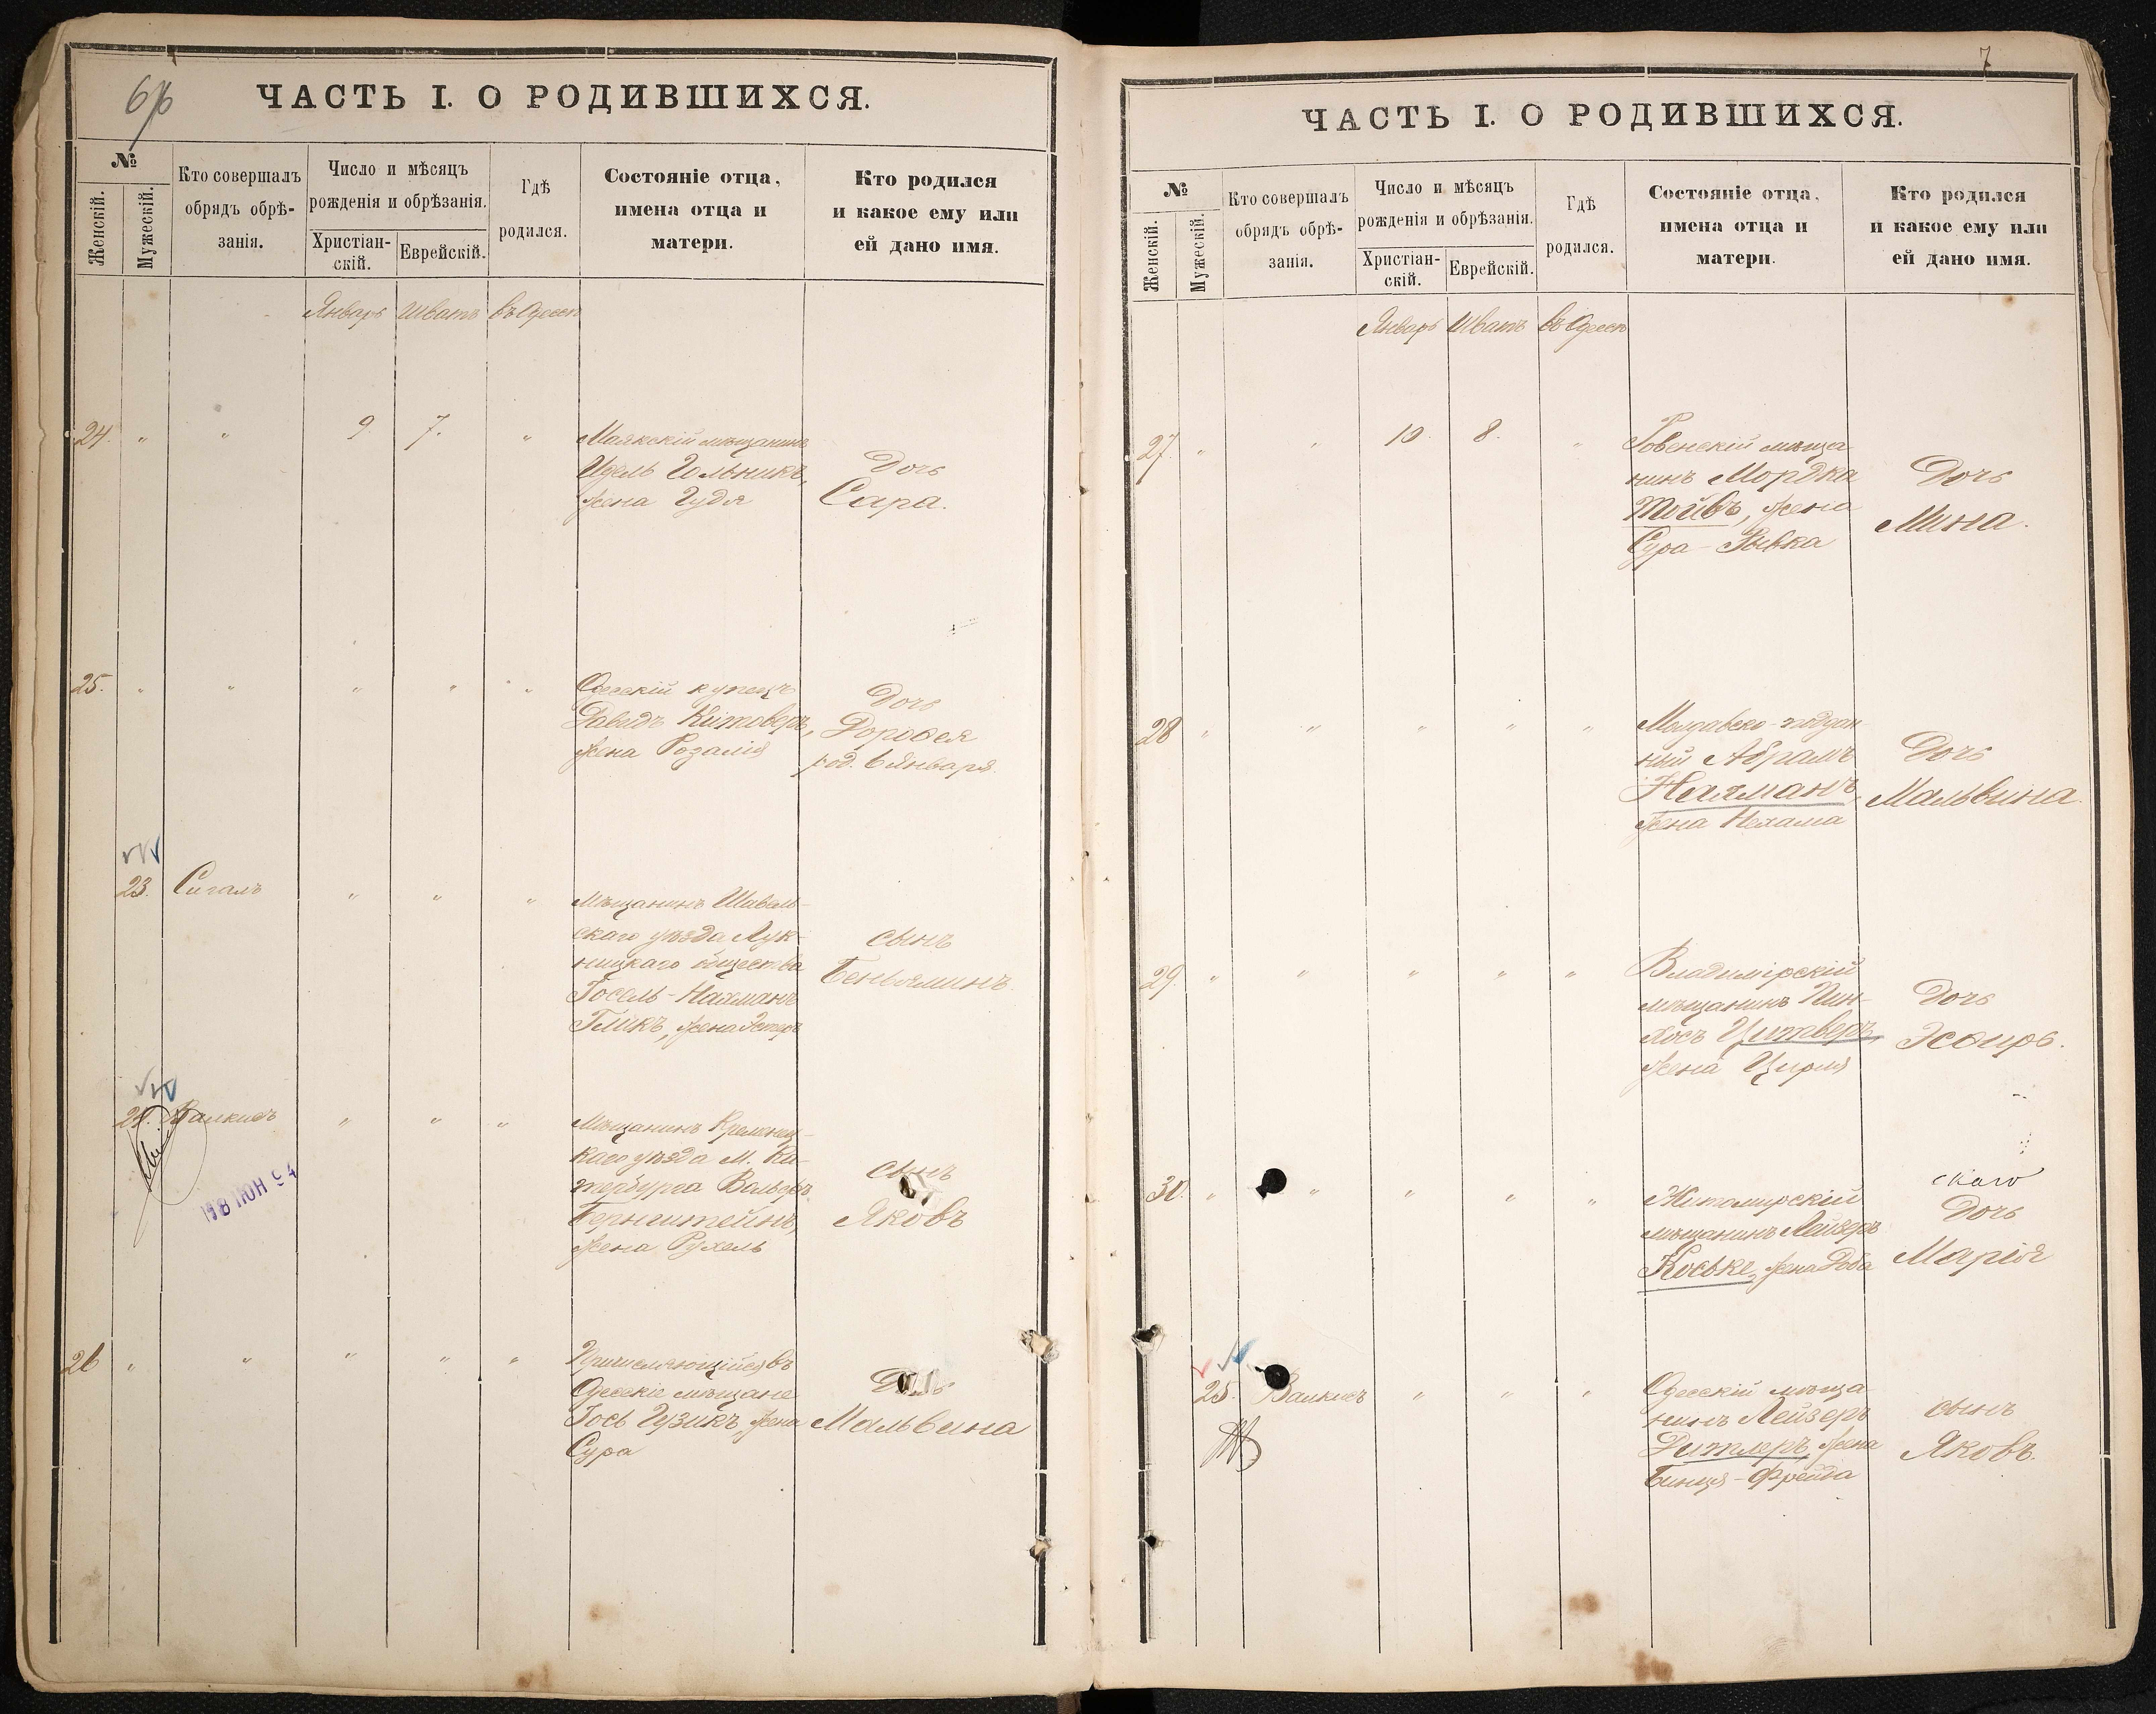 6/б
ЧАСТЬ I. О РОДИВШИХСЯ.
№
Женскій.
Мужескій.
Кто совершалъ
обрядъ обрѣ-
занія.
Число и мѣсяцъ
рожденія и обрѣзанія.
Христіан-
скій.
Еврейскій.
Гдѣ
родился.
Состояніе отца,
имена отца и
матери.
Кто родился
и какое ему или
ей дано имя.
Январь Шватъ въ Одессѣ
24. " " 9. 7. "
Маякскій мѣщанинъ
Идель Гольникъ,
жена Гудя
Дочь
Сара.
25. " " " " "
Одесскій купецъ
Давидъ Китоверъ,
жена Розалія
Дочь
Дорофея
род. 6 Января.
23. Сигалъ " " "
Мѣщанинъ Шавель-
скаго уѣзда Лук-
ницкаго общества
Іосель-Нахманъ
Гликъ, жена Эстеръ
сынъ
Беньяминъ.
24. Валкисъ " " "
18 ІЮН 94
Мѣщанинъ Кременец-
каго уѣзда м. Ка-
тербурга Вольфъ
Бернштейнъ,
жена Рухель
сынъ
Яковъ
26 " " " " "
Причисляющійся въ
Одесскіе мѣщане
Іось Гузикъ, жена
Сура
Дочь
Мальвина
7
ЧАСТЬ I. О РОДИВШИХСЯ.
№
Женскій.
Мужескій.
Кто совершалъ
обрядъ обрѣ-
занія.
Число и мѣсяцъ
рожденія и обрѣзанія.
Христіан-
скій.
Еврейскій.
Гдѣ
родился.
Состояніе отца,
имена отца и
матери.
Кто родился
и какое ему или
ей дано имя.
Январь Шватъ въ Одессѣ
27. " " 10. 8. "
Ровенскій мѣща
нинъ Мордка
Тойбъ, жена
Сура-Рывка
Дочь
Мина.
28 " " " " "
Молдавско-поддан
ный Абрамъ
Нахманъ,
жена Нехама
Дочь
Мальвина.
29. " " " " "
Владимірскій
мѣщанинъ Пин-
хосъ Цитверъ
жена Цирля
Дочь
Эсфирь.
30. " " " " "
Житомирскій
мѣщанинъ Лейзеръ
Коське, жена Доба
скаго
Дочь
Марія
25. Валкисъ " " "
Одесскій мѣща
нинъ Лейзеръ
Дитлеръ, жена
Бинця-Фрейда
сынъ
Яковъ.